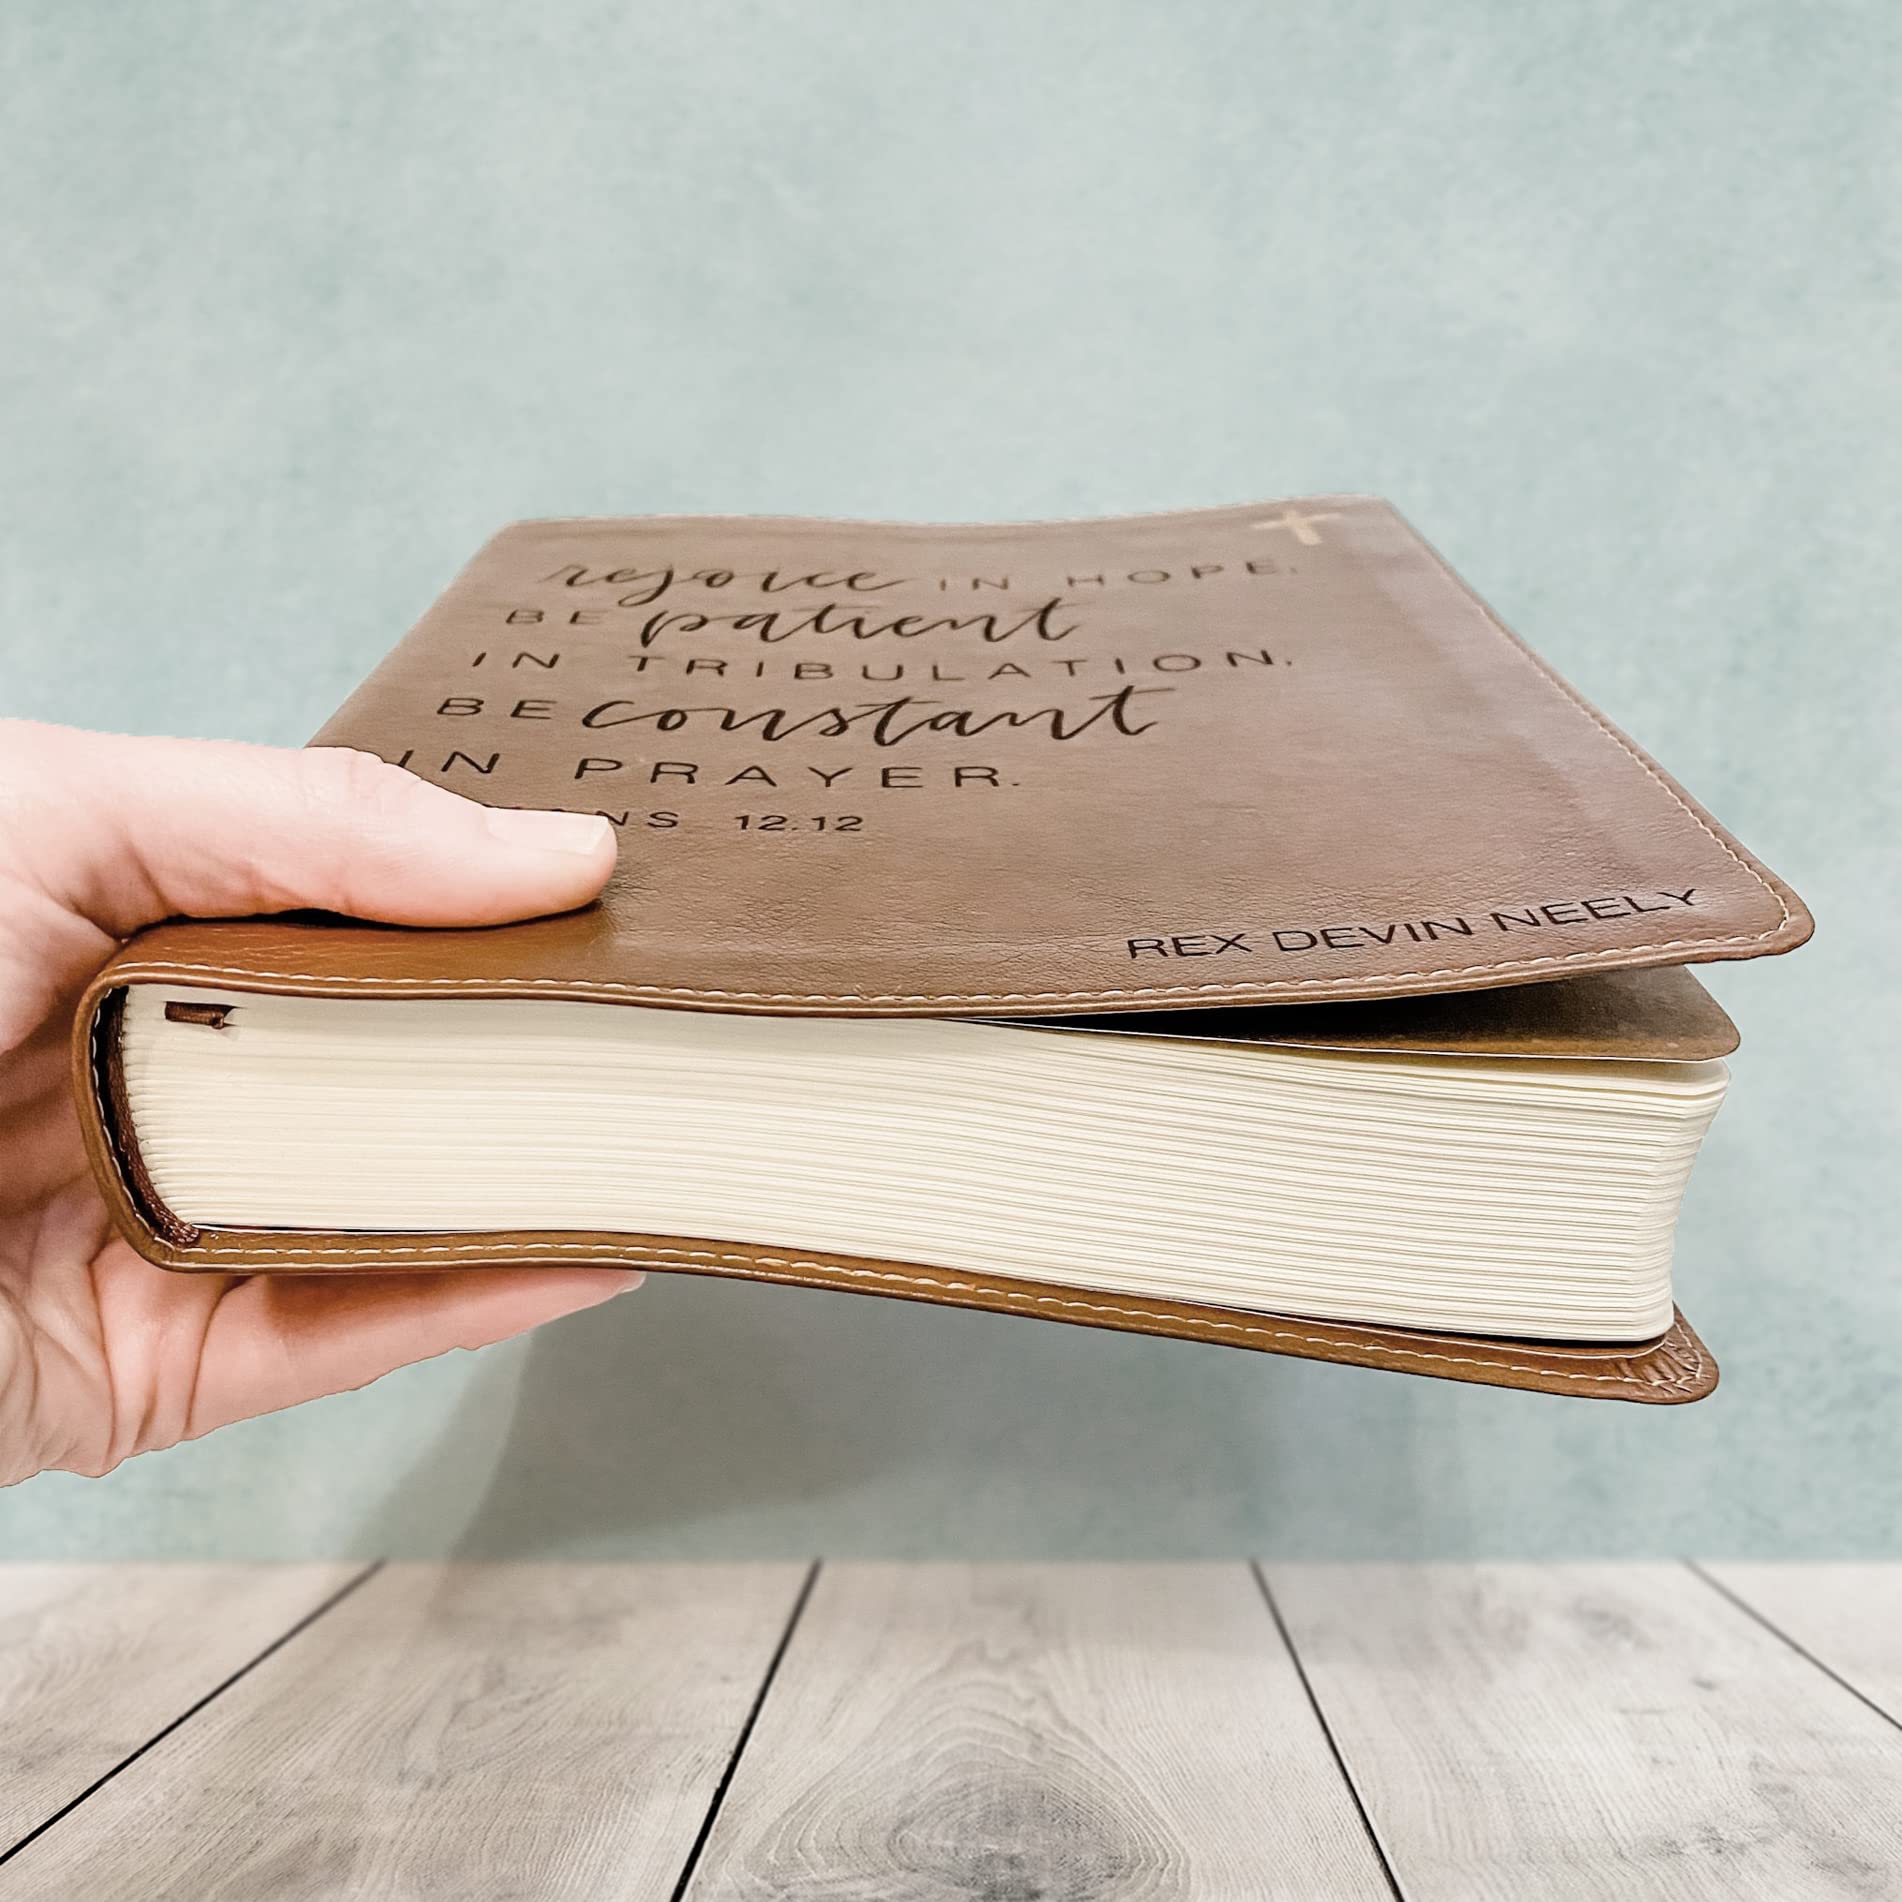 rejoice IN HOPE.
BE patient
IN TRIBULATION.
BE constant
IN PRAYER.
12.12
REX DEVIN NEELY